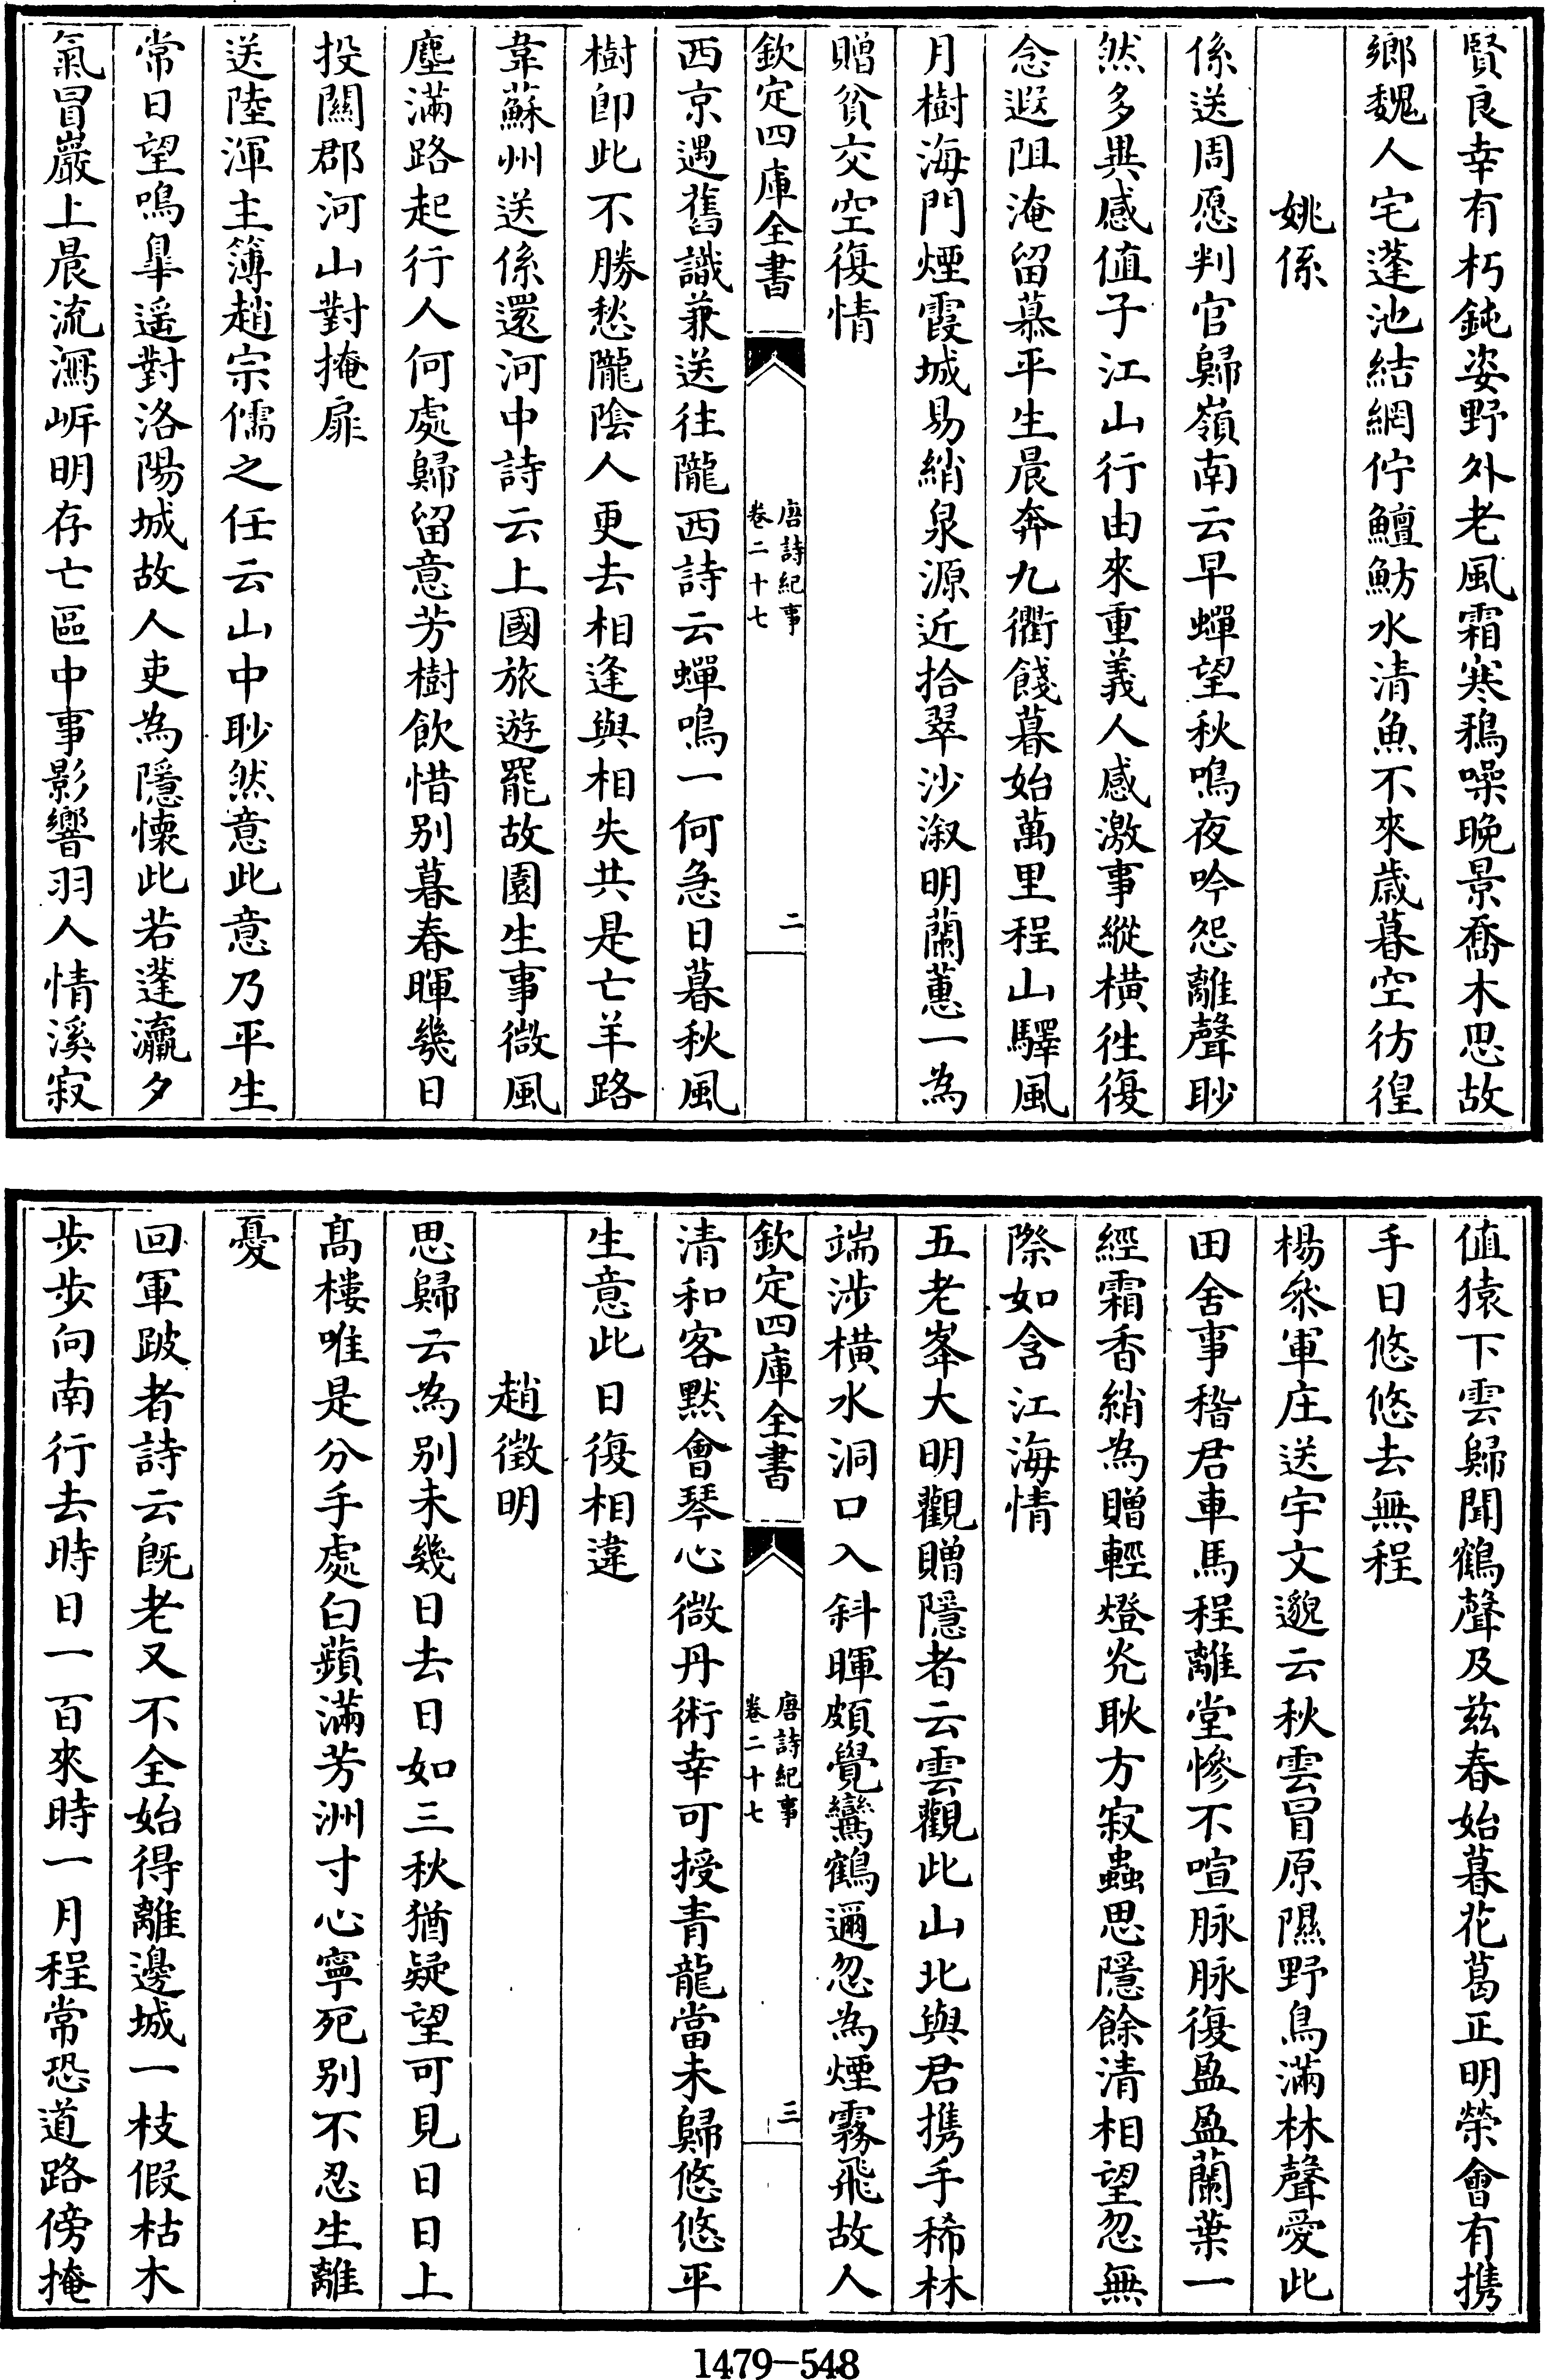 賢良幸有朽鈍姿野外老風霜寒鵶噪晚景喬木思故
鄉魏人宅蓬池結網佇鱣魴水清魚不來歲暮空彷徨
姚係
係送周愿判官歸嶺南云早蟬望秋鳴夜吟怨離聲眇
然多異感值子江山行由來重義人感激事縱橫徃復
念遐阻淹留慕平生晨奔九衢餞暮始萬里程山驛風
月樹海門煙霞城易綃泉源近拾翠沙溆明蘭蕙一為
贈貧交空復情
欽定四庫全書
唐詩紀事
卷二十七
二
西京遇舊識兼送往隴西詩云蟬鳴一何急日暮秋風
樹即此不勝愁隴陰人更去相逢與相失共是亡羊路
韋蘇州送係還河中詩云上國旅遊罷故園生事微風
塵滿路起行人何處歸留意芳樹飲惜别暮春暉幾日
投關郡河山對掩扉
送陸渾主簿趙宗儒之任云山中眇然意此意乃平生
常日望鳴臯遥對洛陽城故人吏為隱懷此若蓬瀛夕
氣冒巖上晨流瀉岍明存亡區中事影響羽人情溪寂
值猿下雲歸聞鶴聲及兹春始暮花葛正明榮會有携
手日悠悠去無程
楊叅軍庄送宇文邈云秋雲冒原隰野鳥滿林聲愛此
田舍事稽君車馬程離堂慘不喧脉脉復盈盈蘭葉一
經霜香綃為贈輕燈光耿方寂蟲思隱餘清相望忽無
際如含江海情
五老峯大明觀贈隱者云雲觀此山北與君携手稀林
端涉橫水洞口入斜暉頗覺鸞鶴邇忽為煙霧飛故人
欽定四庫全書
唐詩紀事
卷二十七
三
清和客默會琴心微丹術幸可授青龍當未歸悠悠平
生意此日復相違
趙徵明
思歸云為别未幾日去日如三秋猶疑望可見日日上
髙樓唯是分手處白蘋滿芳洲寸心寧死别不忍生離
憂
回軍跛者詩云旣老又不全始得離邊城一枝假枯木
步步向南行去時日一百來時一月程常恐道路傍掩
1479—548